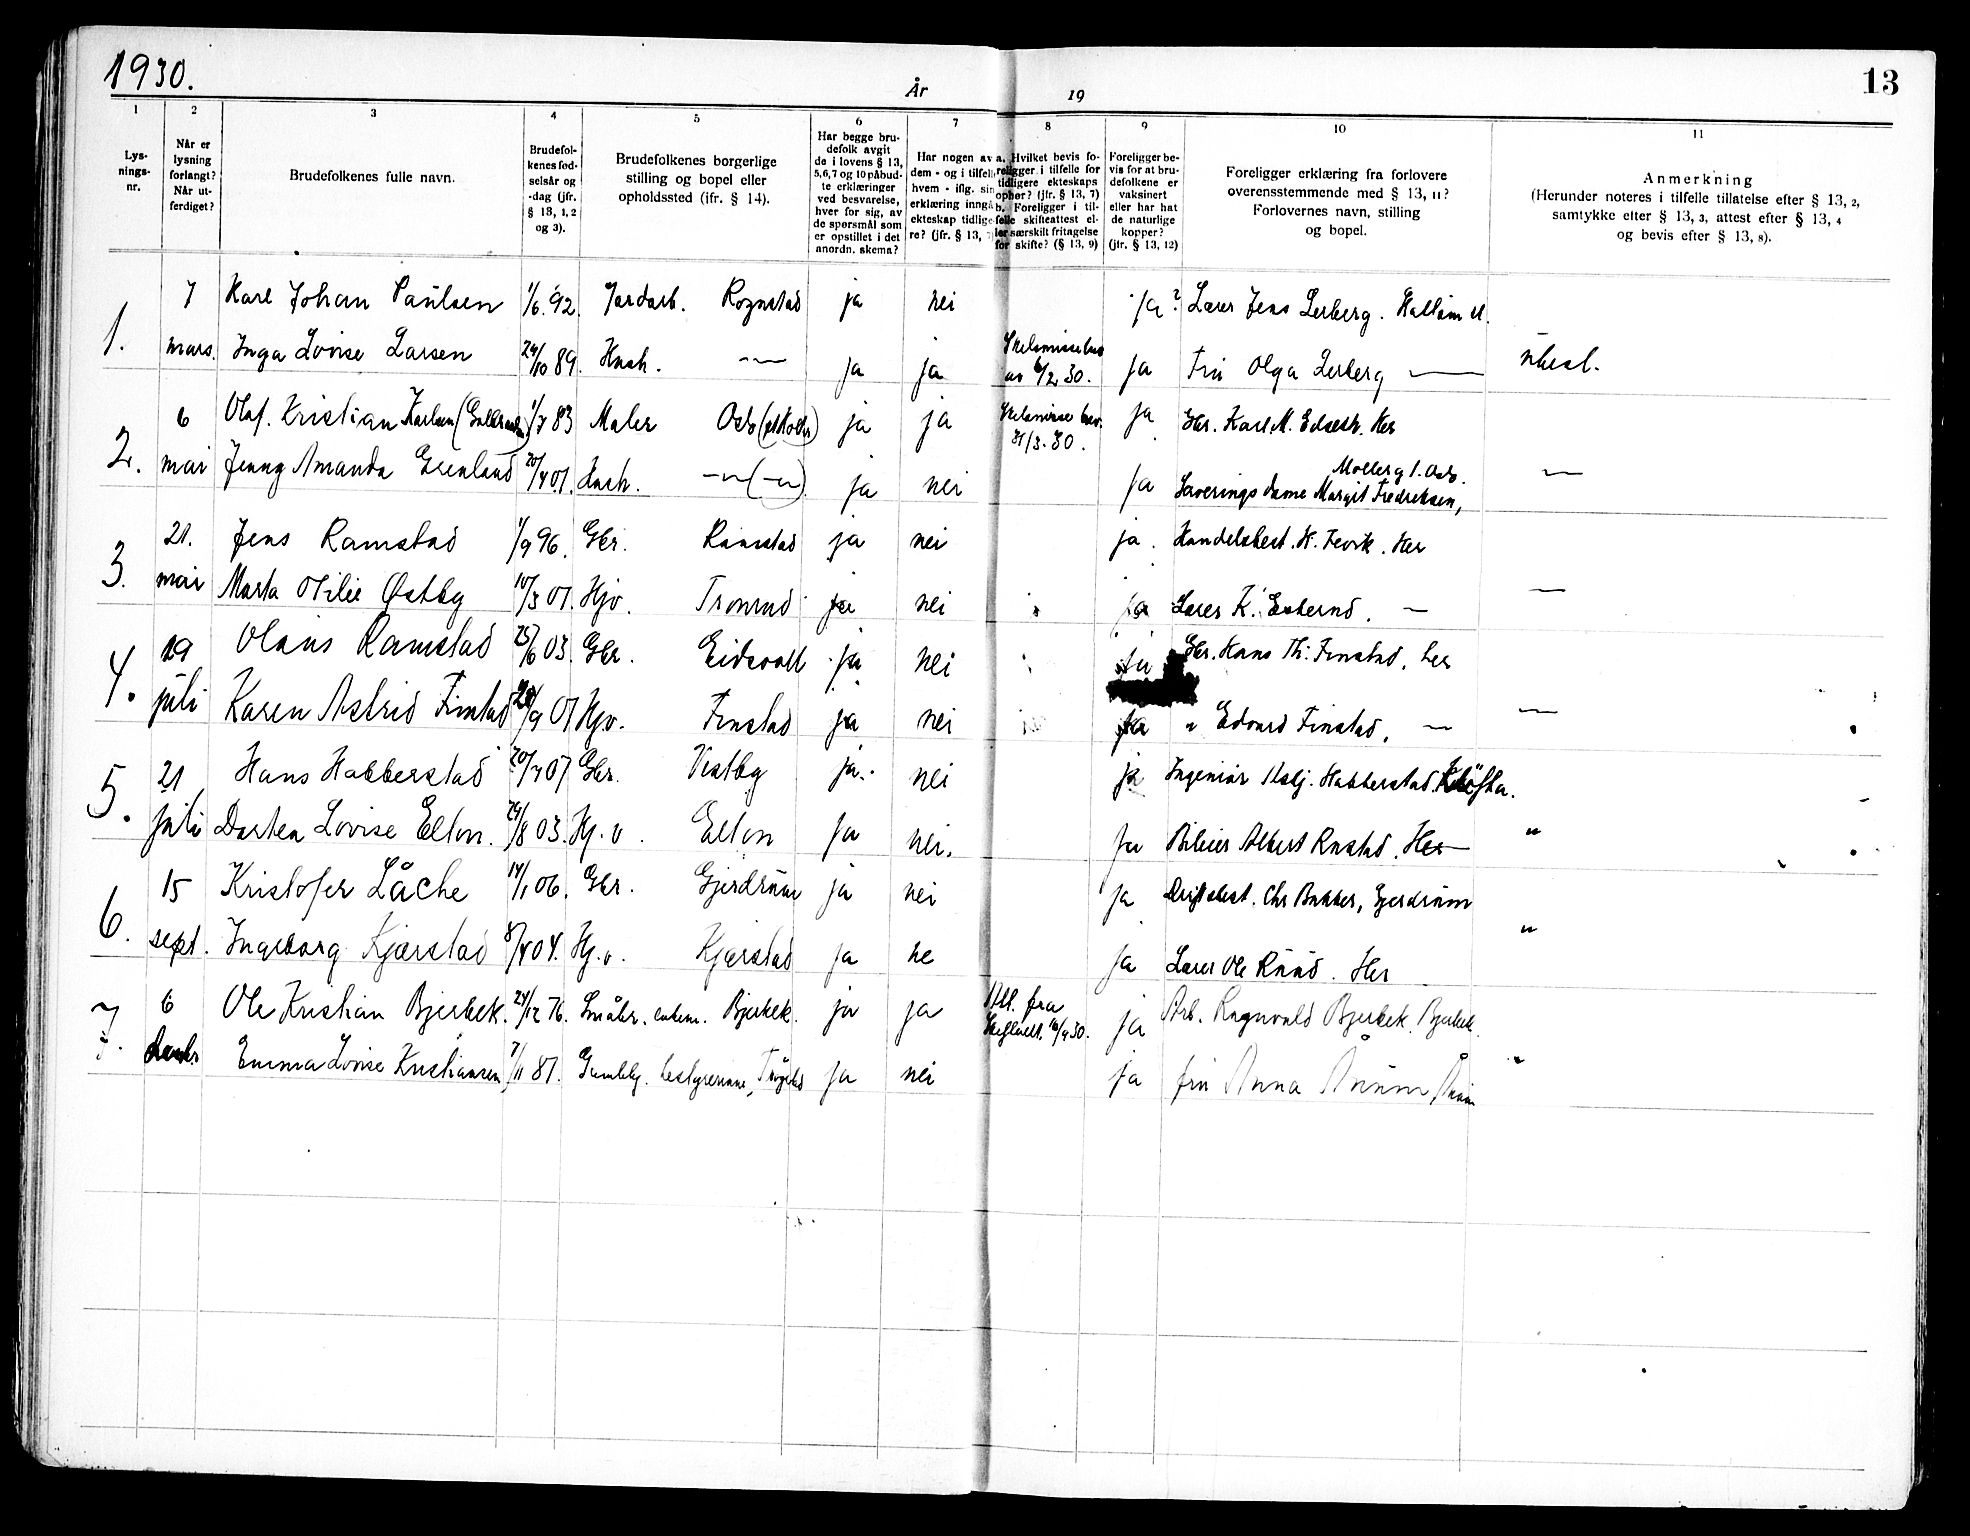 1930.
År 19
13
1 2 3 4 5 6 7 8 9 10 11
Lys-
nings-
nr.
Når er
lysning
forlangt?
Når ut-
ferdiget?
Brudefolkenes fulle navn.
Brudefol-
kenes fød-
selsår og
-dag (jfr.
§ 13, 1, 2
og 3).
Brudefolkenes borgerlige
stilling og bopel eller
opholdssted (jfr. § 14).
Har begge bru-
defolk avgit
de i lovens § 13,
5,6,7 og 10 påbud-
te erklæringer
ved besvarelse,
hver for sig, av
de spørsmål som
er opstillet i det
anordn. skema?
Har nogen av
dem - og i tilfelle
hvem - iflg. sin
erklæring inngå
ekteskap tidlige-
re? (jfr. § 13, 7)
a. Hvilket bevis fo-
religger i tilfelle for
tidligere ekteskaps
ophør? (jfr. § 13, 7)
b. Foreligger i til-
felle skifteattest el-
ler særskilt fritagelse
for skifte? (§ 13, 9)
Foreligger be-
vis for at bru-
defolkene er
vaksinert
eller har hat
de naturlige
kopper?
(jfr. § 13, 12)
Foreligger erklæring fra forlovere
overensstemmende med § 13, 11?
Forlovernes navn, stilling
og bopel.
Anmerkning
(Herunder noteres i tilfelle tillatelse efter § 13, 2,
samtykke efter § 13, 3, attest efter § 13, 4
og bevis efter § 13, 8).
1. 7 Karl Johan Paulsen 1/6.92. Jordarb. Rognstad ja nei ja? Lærer Jens Lerberg.
mars. Inga Lovise Larsen 24/10 89. Hush. —„— ja ja Skilsmissebev. av 6/2 30. ja Fru Olga Lerberg — ubesl.
2. 6 Olaf. Kristian Karlsen 1/7 83 Maler Oslo ja ja Skilsmisse bev. 31/3.30. ja Gbr. Karl M.
mai Jenny Amanda Grenland 20/4 01. Hush. —„—(—„—) ja nei ja Margit Fredriksen, Møllerg 1. Oslo. —„—
3. 21. Jens Ramstad 1/9 96. Gbr. Ramstad ja nei ja. Handelsbest. H. Her
mai Marta Otilie Østby 10/3 01. Hjv. Tronrud ja nei ja Lærer K. — —„—
4. 19 Olaus Ramstad 25/6 03. Gbr. Eidsvoll ja nei ja Gbr. Hans Th. Finstad, her
juli Karen Astrid Finstad 28/9 07 Hjv. Finstad ja nei ja " Edvard Finstad, — —„—
5. 21 Hans Habberstad 20/7 07 Gbr. Vestby ja. nei ja Ingeniør Asbj. Habberstad. Kløfta.
juli Dorthea Lovise Elton. 29/8 03. Hj.v. Elton ja nei. ja Bileier Albert Rustad. Her "
6. 15 Kristofer Låche 14/1 06. Gbr. Gjerdrum ja nei ja Driftsbest. Chr Bakker, Gjerdrum
sept. Ingeborg Kjærstad 8/4 04. Hj.v. Kjærstad ja ne ja Lærer Ole Ruud. Her "
7. 6 Ole Kristian Bjerkek. 24/12 76. Småbr. enkem. Bjerkek. ja ja Att. fra 16/9 30. ja Arb. Ragnvald Bjerkek. Bjerkek
Emma Lovise Kristiansen 7/11 87. Gamlehj. bestyrerinne, Trøgstad ja nei ja fru Anna Årum Årum "